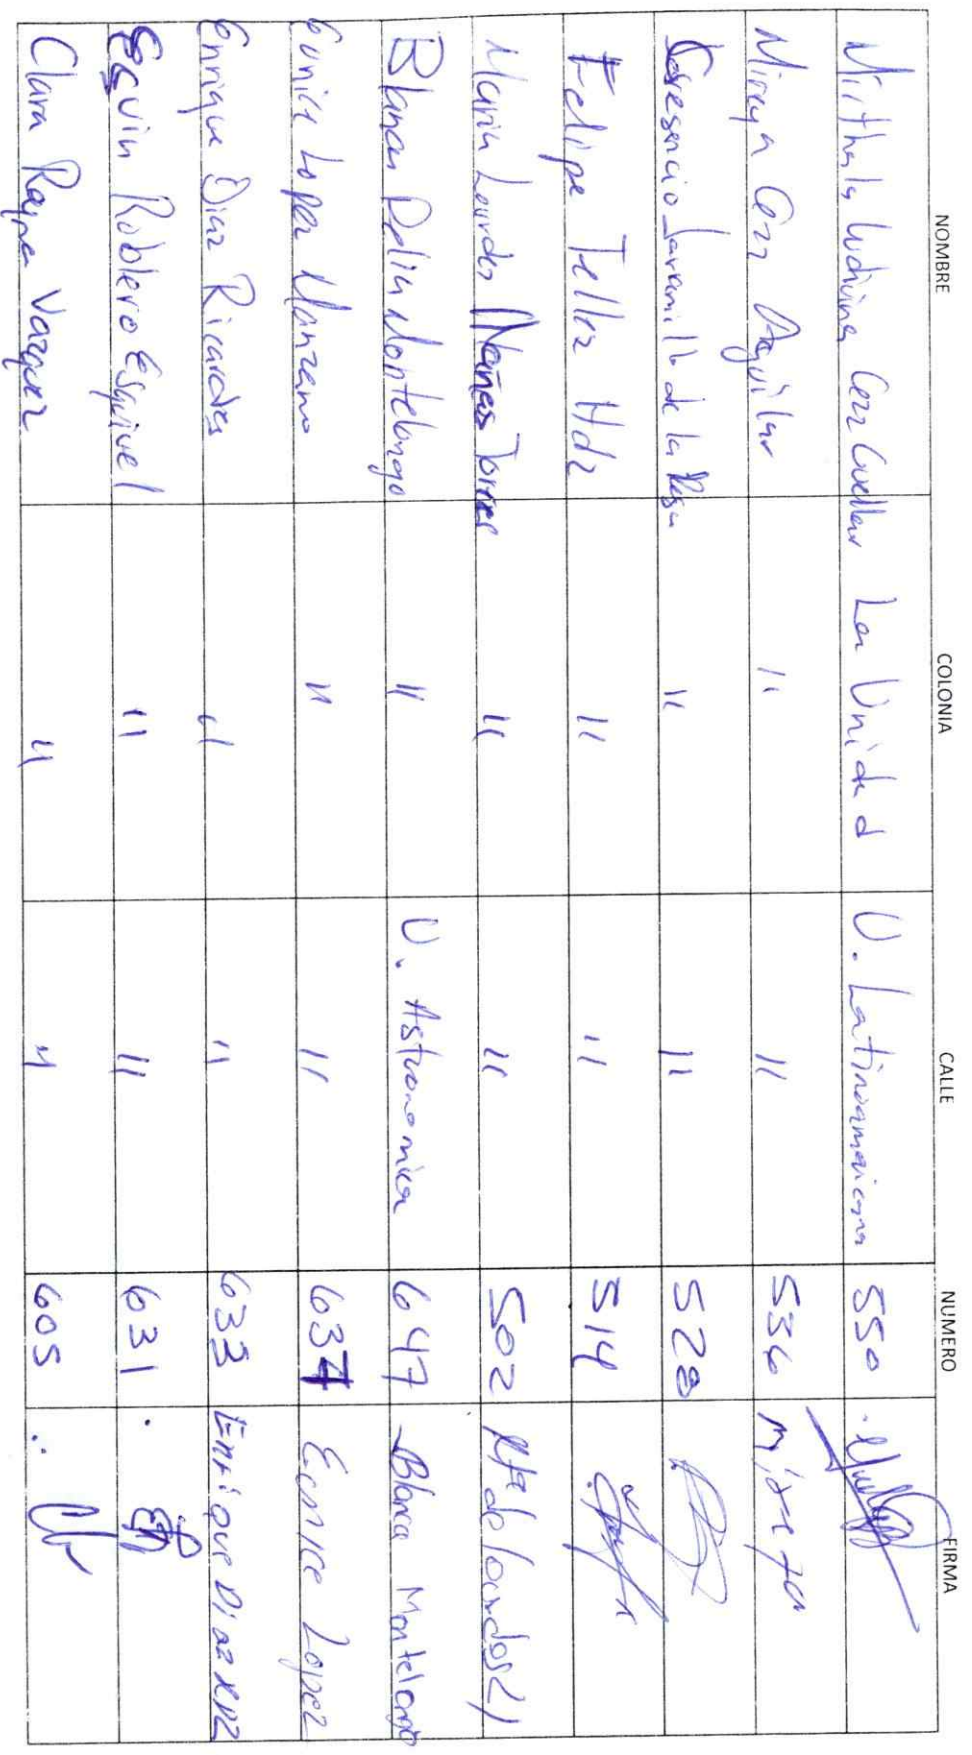 NOMBRE COLONIA CALLE NUMERO FIRMA
Mirthala Ludivina Cerr Cuellar La Unidad U. Latinoamericana 550
Mireya Cerr Aguilar " " 536 Mireya
Cresencio Jaramillo de la Rosa " " 528
Felipe Tellez Hdz " " 514
Maria Lourdes Torres " " 502
Blanca Delia Montelongo " U. Astronomica 647 Blanca Montelongo
Eunice Lopez Manzano " " 637 Eunice Lopez
Enrique Diaz Ricardes " " 633 Enrique Diaz
Esvin Roblero Esquivel " " 631
Clara Reyna Vazquez " " 605